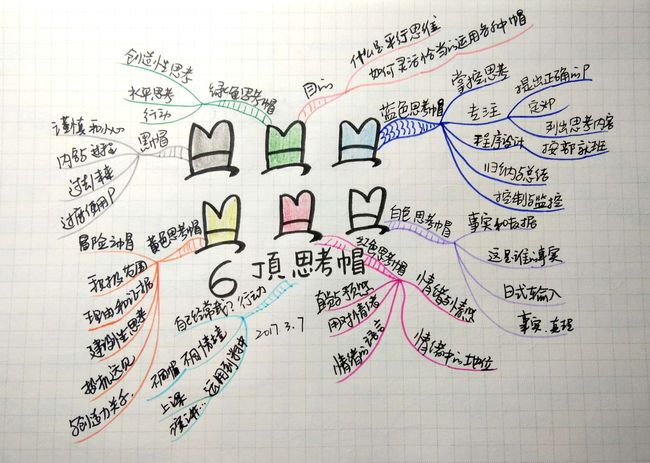 6頂思考帽
2017.3.7
目的
什么是平行思维
如何灵活恰当的运用各种帽
蓝色思考帽
掌控思考
专注
提出正确的P
定义P
列出思考内容
程序设计
按部就班
归纳与总结
控制与监控
白色思考帽
事实和数据
这是谁的事实
日式输入
事实、真理
红色思考帽
情绪与情感
情绪中的地位
直觉与预感
用对情绪
情绪的语言
行动
自己经常戴?
不同帽 不同情境
上课
运用到教学中
黄色思考帽
冒险之帽
积极范围
理由和证据
建创性思考
投机远见
与创造力关系
黑帽
谨慎和小心
内容
过去未来
过度使用P
绿色思考帽
创造性思考
水平思考
行动